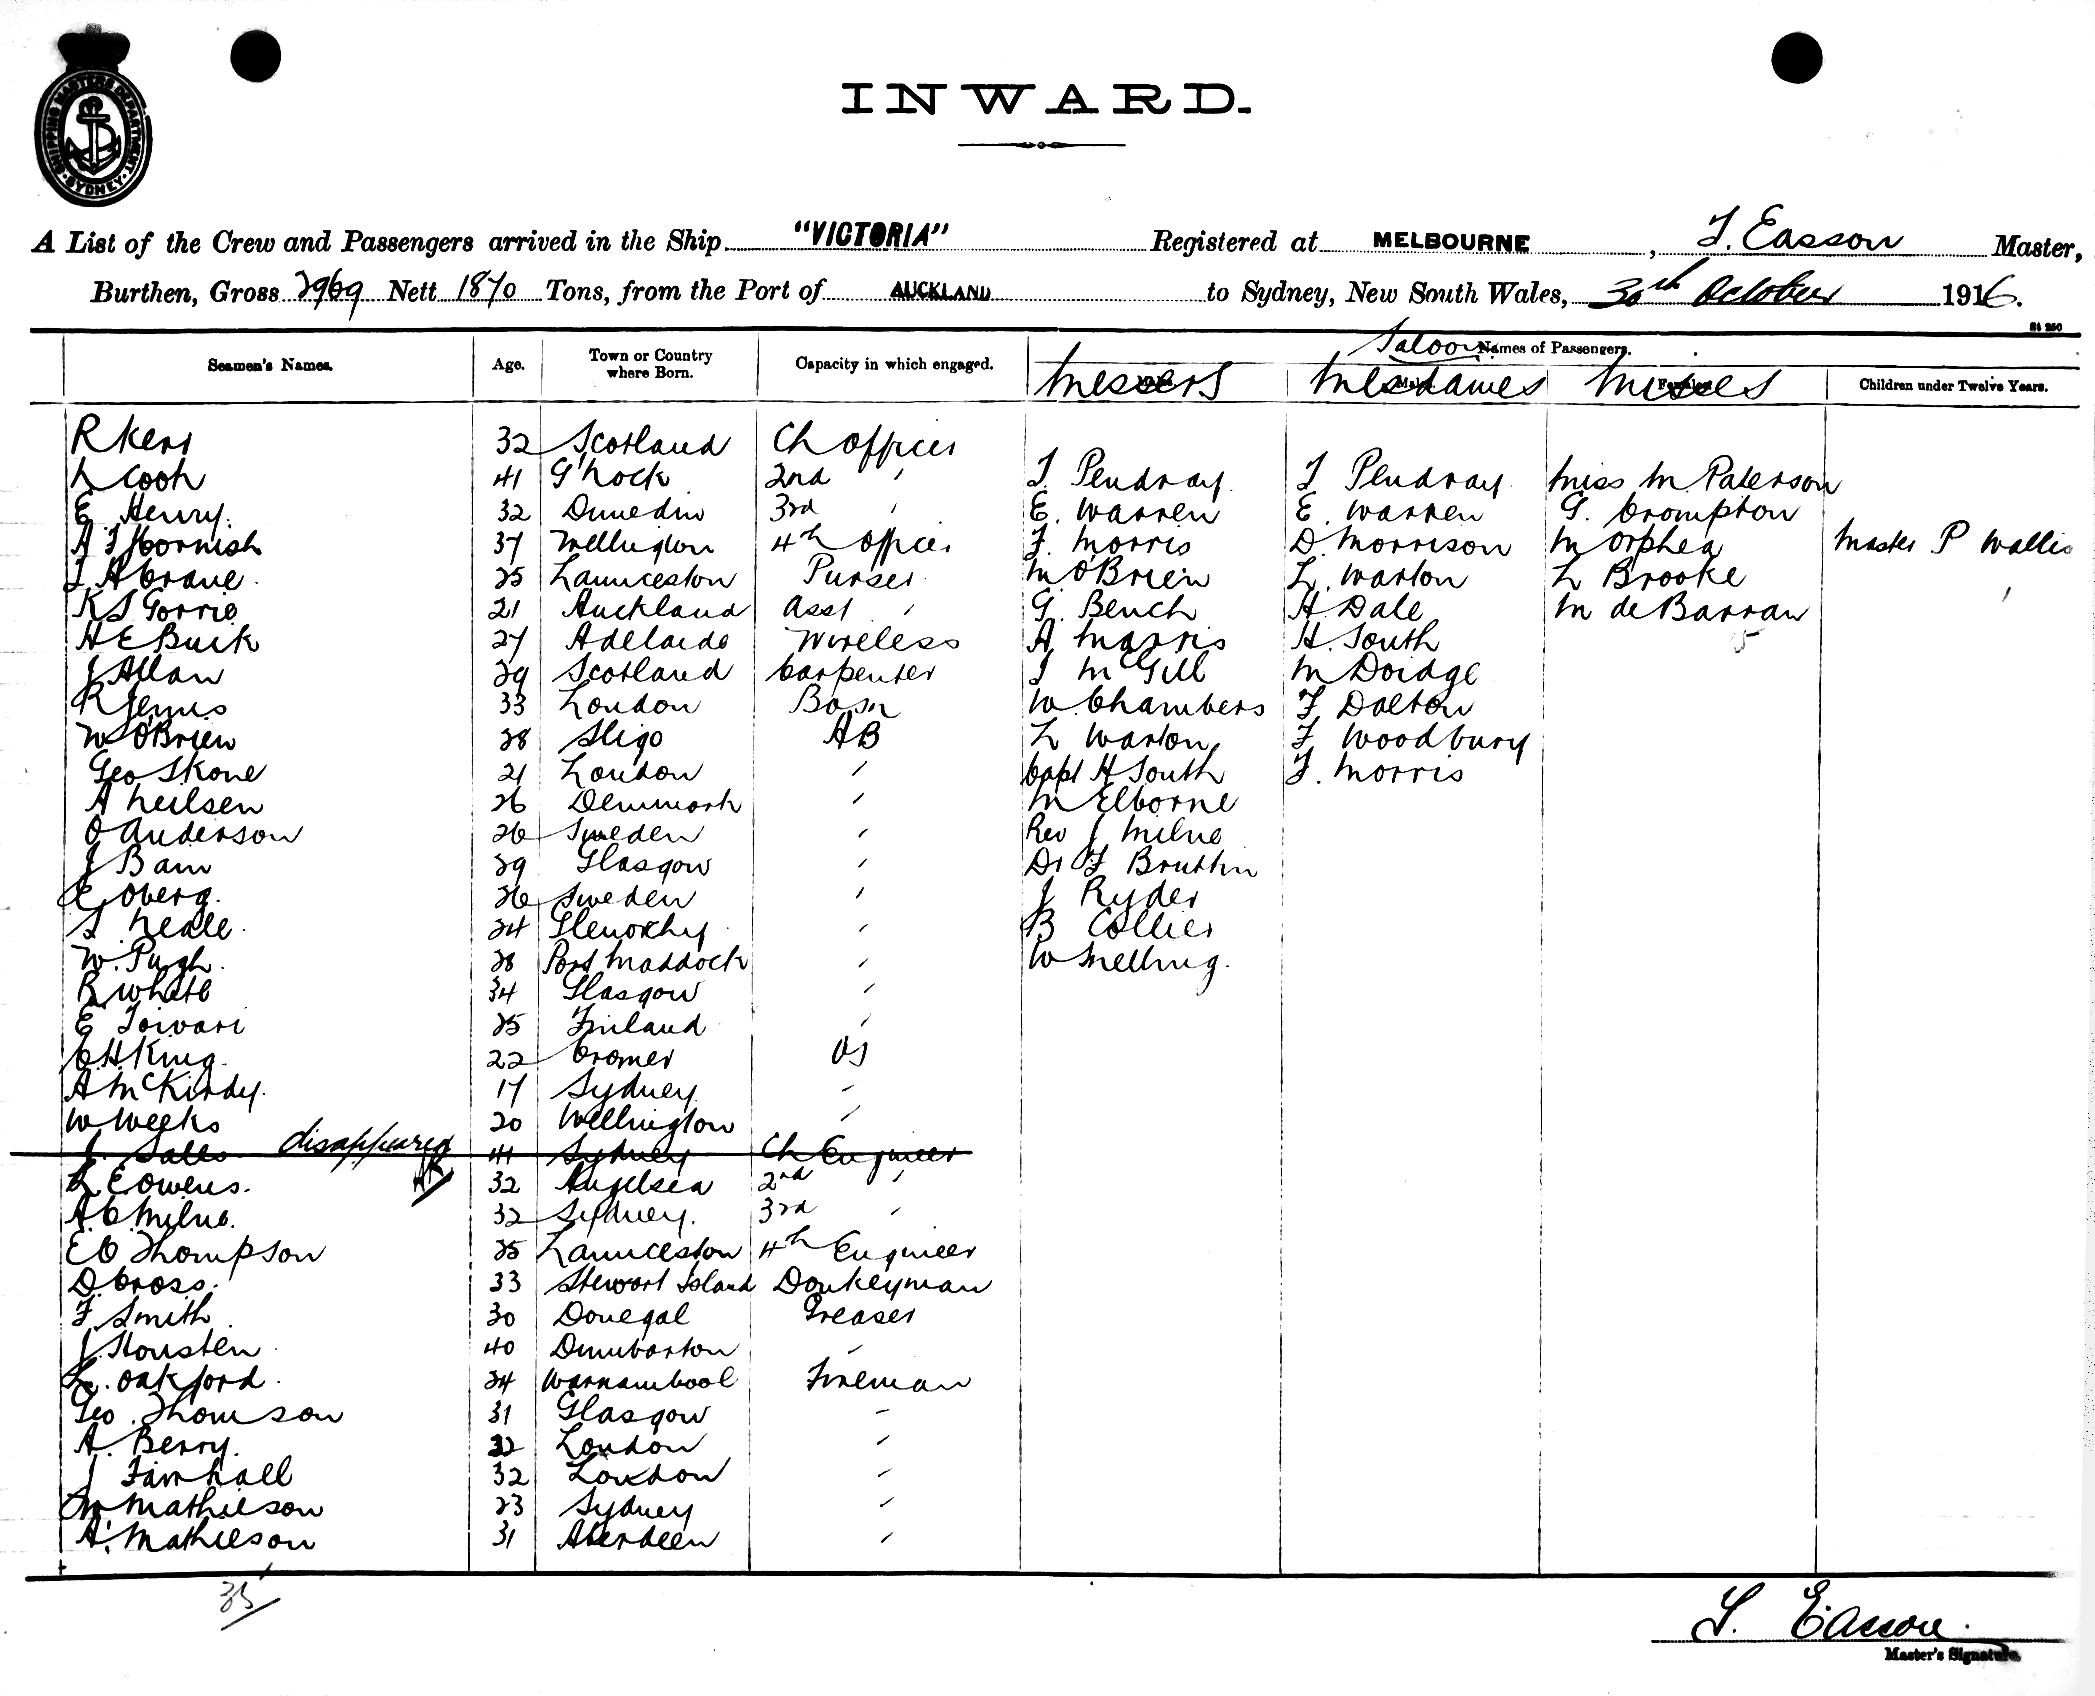 SHIPPING MASTERS DEPARTMENT SYDNEY
INWARD.
A List of the Crew and Passengers arrived in the Ship "VICTORIA" Registered at MELBOURNE, J. Easson Master,
Burthen, Gross 2969 Nett 1870 Tons, from the Port of AUCKLAND to Sydney, New South Wales, 30th October 1916.
St 250
Saloon Names of Passengers.
Seamen's Names. Age. Town or Country where Born. Capacity in which engaged. Messrs Mesdames Misses Children under Twelve Years.
R Kerr 32 Scotland Ch officer
L Cook 41 G'nock 2nd " J. Pendray J Pendray Miss M. Paterson
E. Henry. 32 Dunedin 3rd " E. Warren E. Warren G. Crompton
A J Cornish 37 Wellington 4th officer F. Morris D. Morrison M Orphea Master P Wallis
J A Crane. 25 Launceston Purser M O'Brien L. Warton L Brooke
K S Gorrie 21 Auckland Asst " G. Bench A. Dale M de Barran
A E Buik 27 Adelaide Wireless A Marris H. South 5
J Allan 29 Scotland Carpenter J McGill M Doidge
R Jenns 33 London Bosn W. Chambers F Dalton
W O'Brien 28 Sligo AB L Warton F Woodbury
Geo Skone 21 London " Capt H South F. Morris
A Neilsen 26 Denmark " M Elborne
O Anderson 26 Sweden " Rev J Milne
J Bain 29 Glasgow " Dr F Bruttin
E Oberg. 26 Sweden " J Ryder
S Neale. 24 Glenorchy " B Collier
W. Pugh. 28 Port Maddock " W Melling.
R White 34 Glasgow "
E Toivari 25 Finland "
C H King. 22 Cromer OS
A McKirdy. 17 Sydney "
W Weeks 20 Wellington "
J. Sales disappeared 41 Sydney Ch Engineer
L E Owens. 32 Anglesea 2nd "
A. C. Milne. 32 Sydney. 3rd "
E O Thompson 25 Launceston 4th Engineer
D. Cross. 33 Stewart Island Donkeyman
F Smith. 30 Donegal Greaser
J Housten. 40 Dumbarton "
L. Oakford. 24 Warnambool Fireman
Geo. Thomson 31 Glasgow "
A. Berry. 32 London "
J Fairhall 32 London "
M Mathieson 23 Sydney "
A. Mathieson 31 Aberdeen "
35
J. Easson.
Master's Signature.